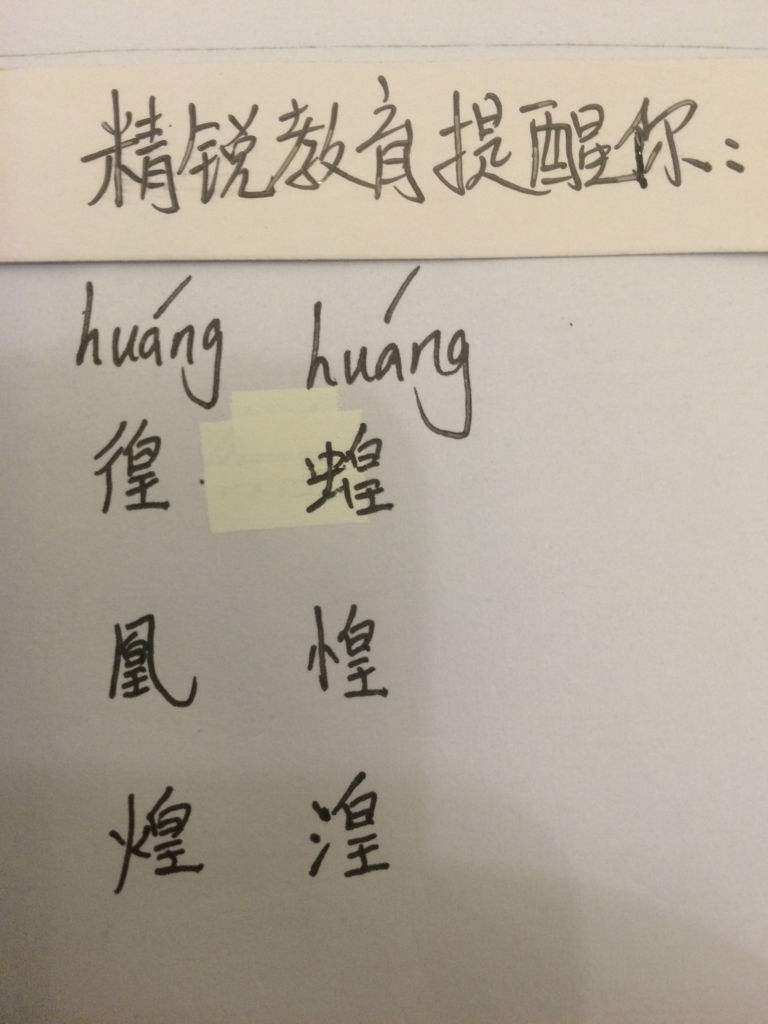 精锐教育提醒你:
huáng huáng
徨 蝗
凰 惶
煌 湟